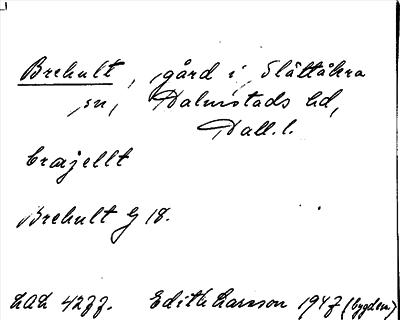 Brehult, gård i Slättåkra
sn, Halmstads hd,
Hall. l.
bræjellt
Brehult G 18.
LAL 4277. Edith Larsson 1947 (bygdem)